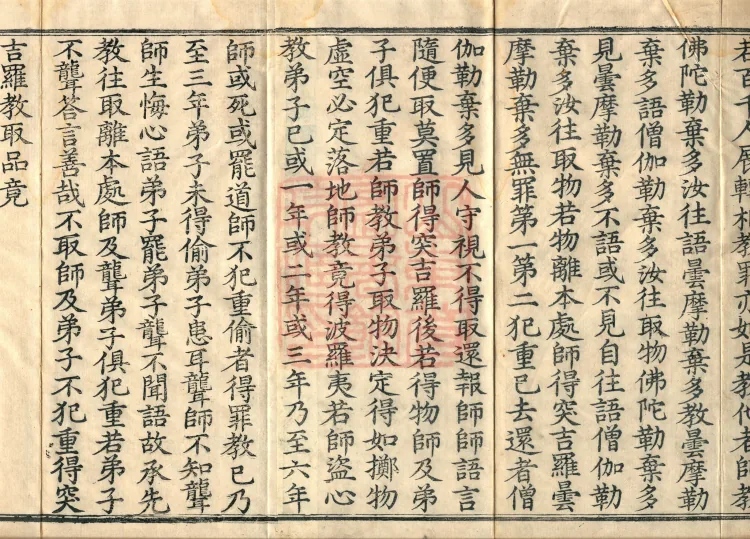 若百千人展轉相教罪亦如是教他者師教
佛陀勒棄多汝往語曇摩勒棄多教曇摩勒
棄多語僧伽勒棄多汝往取物佛陀勒棄多
見曇摩勒棄多不語或不見自往語僧伽勒
棄多汝往取物若物離本處師得突吉羅曇
摩勒棄多無罪第一第二犯重已去還者僧
伽勒棄多見人守視不得取還報師師語言
隨便取莫置師得突吉羅後若得物師及弟
子俱犯重若師教弟子取物決定得如擲物
虛空必定落地師教竟得波羅夷若師盜心
教弟子已或一年或二年或三年乃至六年
師或死或罷道師不犯重偷者得罪教已乃
至三年弟子未得偷弟子患耳聾師不知聾
師生悔心語弟子罷弟子聾不聞語故承先
教往取離本處師及聾弟子俱犯重若弟子
不聾答言善哉不取師及弟子不犯重得突
吉羅教取品竟